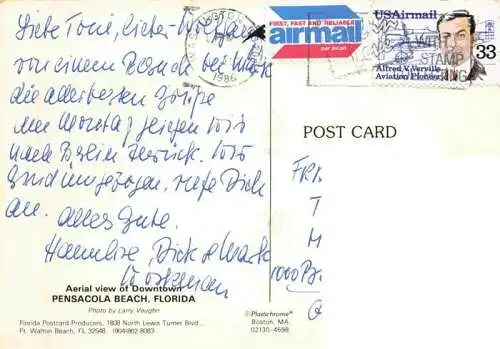 Liebe Toni, lieber Wolfgang
von einem Besuch bei Mark
die allerbesten Grüße
Am Montag fliegen wir
nach Berlin zurück. Wir
sind umgezogen. rufe Dich
an. Alles Gute.
Hannelore, Dick & Mark
Workman
Aerial view of Downtown
PENSACOLA BEACH, FLORIDA
Photo by Larry Vaughn
Florida Postcard Producers, 1808 North Lewis Turner Blvd.,
Ft. Walton Beach, FL 32548 (904)862-8083
FIRST, FAST AND RELIABLE
airmail
par avion
1986
USAirmail
33
Alfred V. Verville
Aviation Pioneer
WITH
STAMP
POST CARD
FR
T
M
1000 B
©Plastichrome®
Boston, MA
02130-4698